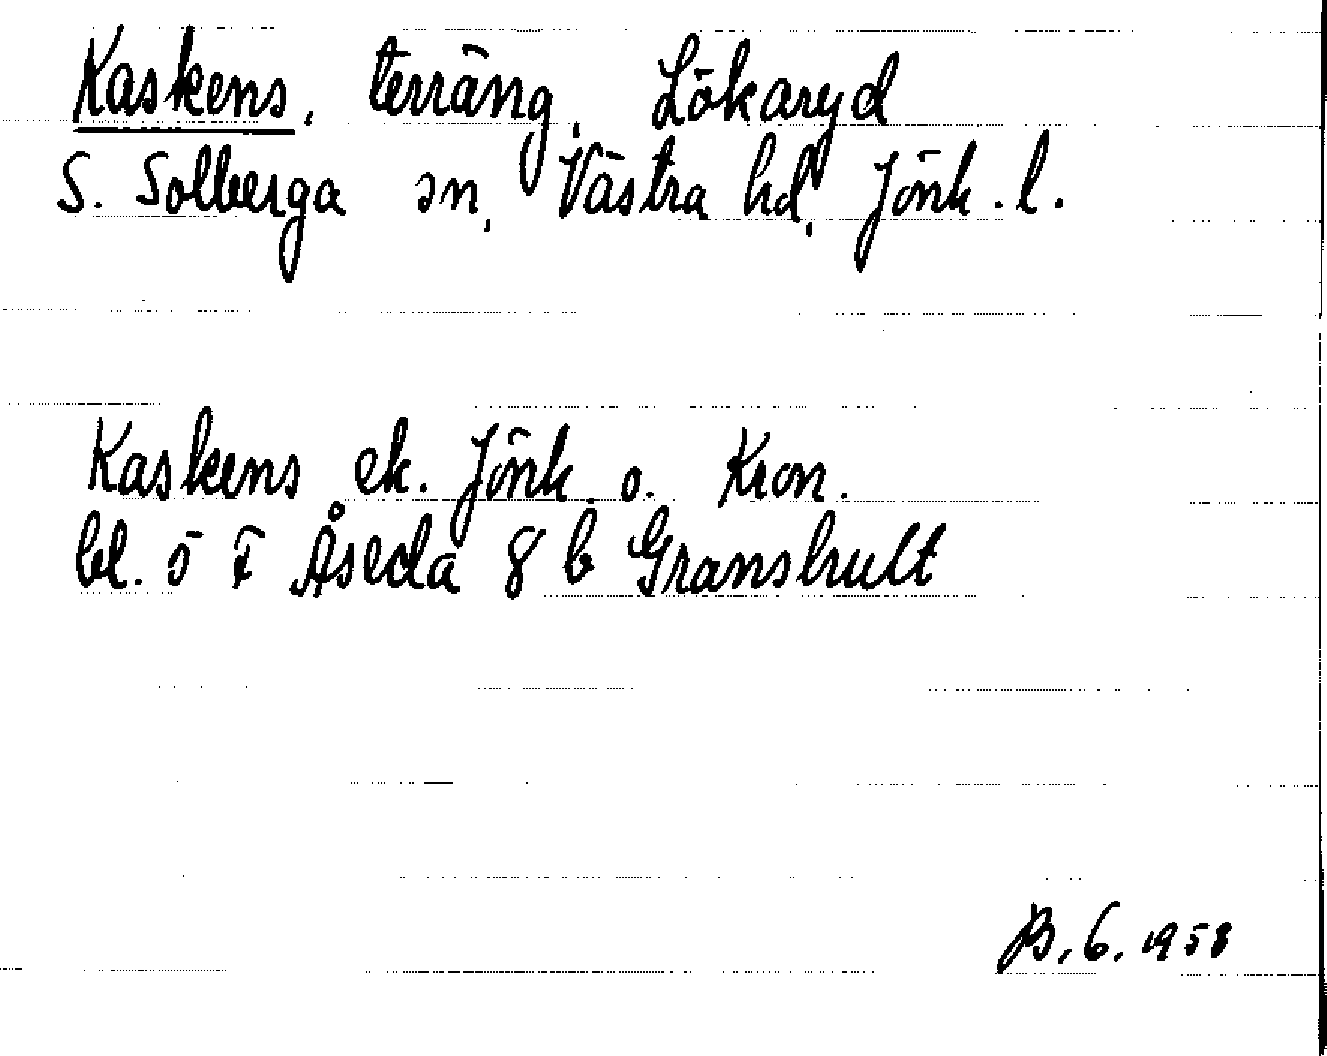 Kaskens, terräng, Lökaryd
S. Solberga sn, Västra hd, Jönk. l.
Kaskens ek. Jönk. o. Kron.
bl. 5 F Åseda 8 b Granshult
B. 6. 1958